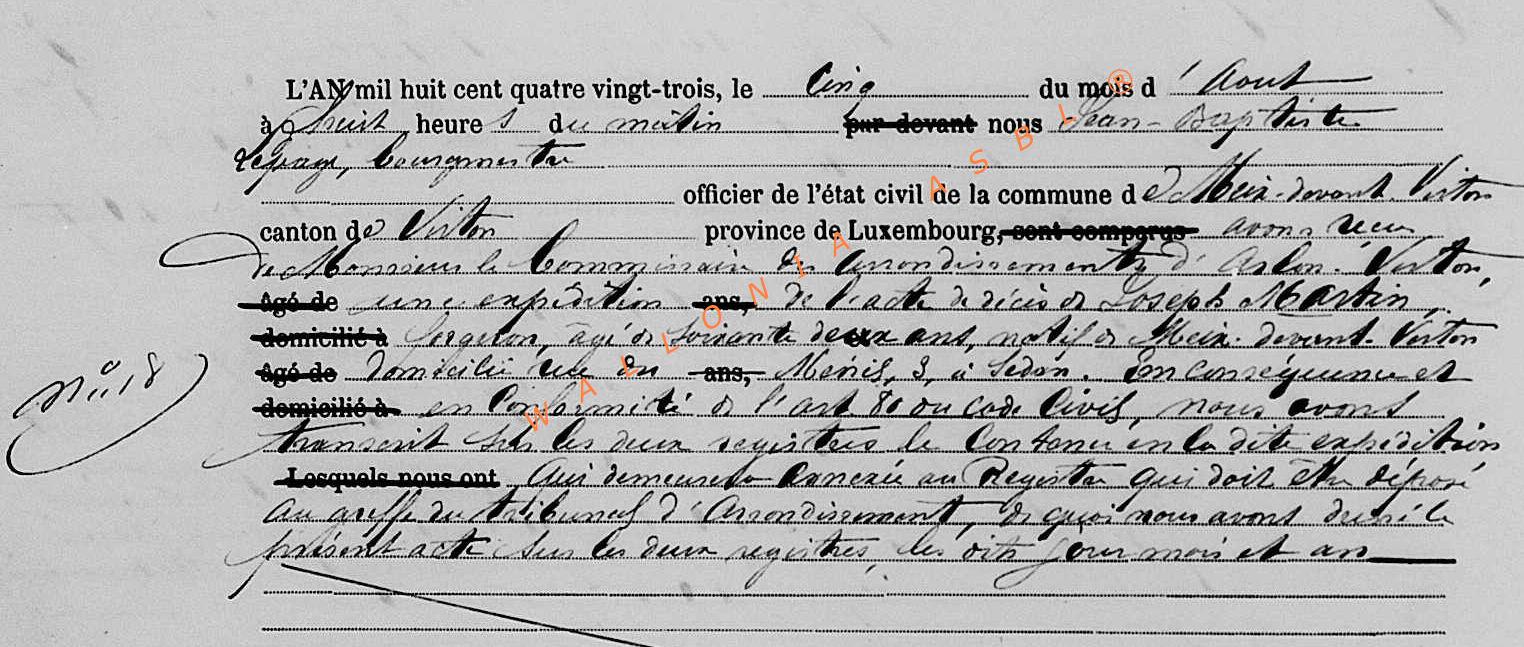 L'AN mil huit cent quatre vingt-trois, le cinq du mois d'Aout
à huit heures du matin par devant nous Jean-Baptiste
Lepage, bourgmestre
officier de l'état civil de la commune de Meix-devant-Virton
canton de Virton province de Luxembourg, sont comparus avons reçu
de Monsieur le Commissaire des arrondissements d'Arlon-Virton,
âgé de une expédition ans, de l'acte de décès de Joseph Martin
domicilié à forgeron, âgé de soixante deux ans, natif de Meix-devant-Virton
âgé de domicilié rue du ans, Ménil, 3, à Sedan. En conséquence et
N° 18
domicilié à en conformité de l'art 80 du code Civil, nous avons
transcrit sur les deux registres le contenu en la dite expédition
Lesquels nous ont qui demeurera annexée au Registre qui doit être déposé
au greffe du tribunal d'Arrondissement, de quoi nous avons dressé le
présent acte sur les deux registres, les dits jour mois et an
WALLONIA ASBL ®